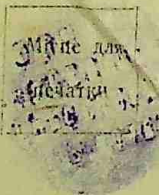 Місце для
печатки